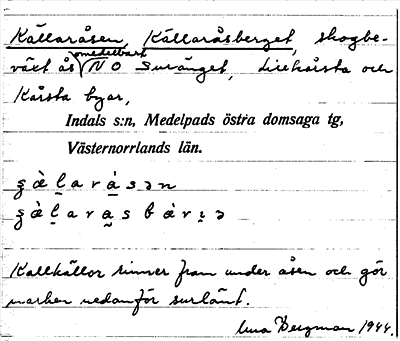 Källaråsen, Källaråsberget, skogbe-
växt ås (omedelbart N O Suränget, Lillkårsta och
Kårsta byar,
Indals s:n, Medelpads östra domsaga tg,
Västernorrlands län.
Kallkällor rinner fram under åsen och gör
marken nedanför surlänt.
Bergman 1944.